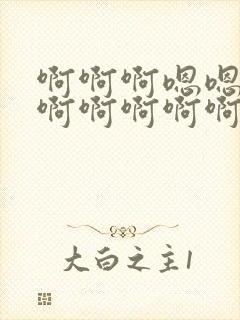 啊啊啊嗯嗯
啊啊啊啊啊
大白之主1